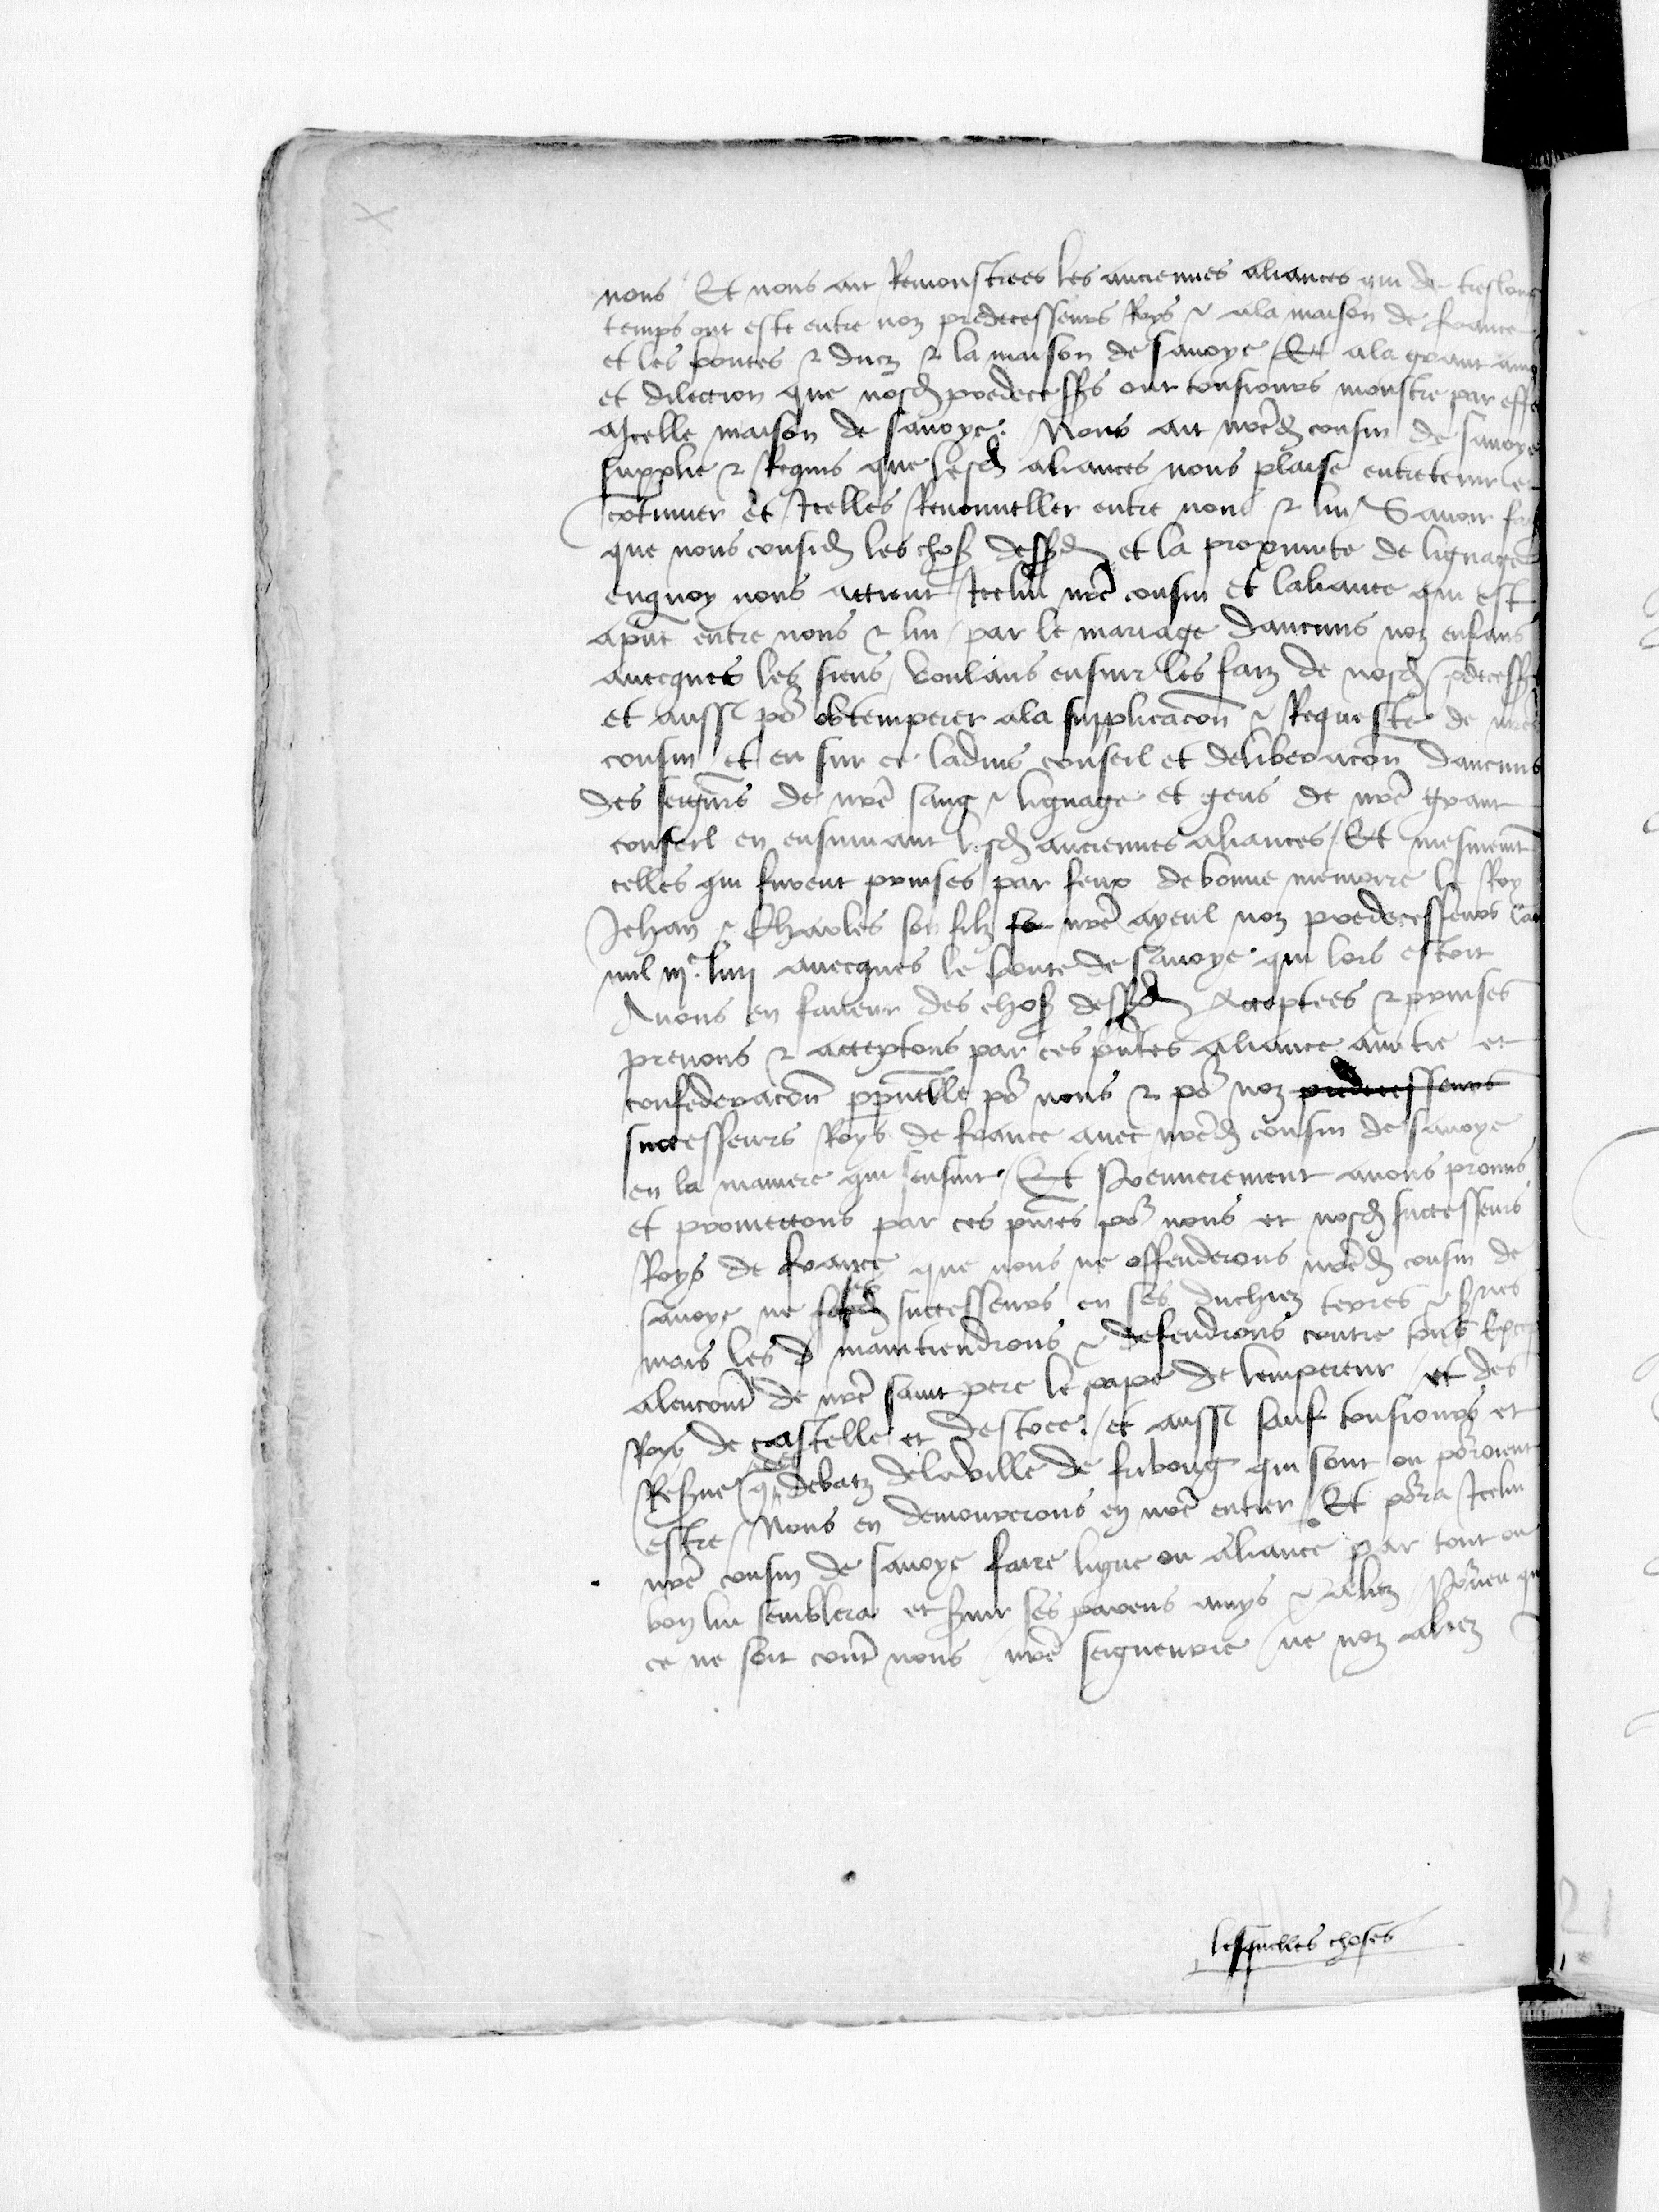 nous Et nous ait Remonstrees les anciennes aliances qui de treslong
temps ont este entre noz predecesseurs Roys & ala maison de france
et les contes & ducz & la maison de savoye Et ala grant am
et dilection que nosd predecess'rs ont tousiours monstre par effe
a Jcelle maison de savoye. Nous ait nred cousin de savoye
supplie & Requis que lesd aliances nous plaise entretenir et
cōtinuer et Jcelles Renouveller entre nous & lui Savoir fai
que nous considꝭ les choses dessusd et la proximite de lignage
enquoy nous attient Jcelui nrē cousin et laliance qui est
apnt entre nous & lui par le mariage daucuns noz enfans
avecques les siens voulans ensuir les faiz de nosd pdecess
et aussi po' obtemperer ala supplicacōn & Requeste de nred
cousin et eu sur ce ladvis conseil et deliberacōn daucuns
des seign'rs de nrē sang & lignage et gens de nrē grant
conseil en ensuivant lesd anciennes aliances Et mesmemt
celles qui furent prinses par feux de bonne memoire le Roy
Jehan & Charles son filz nrē ayeul noz predecesseurs lan
mil iijc liiij avecques le conte de savoye qui lors estoit
Avons en faveur des choses dessusd Acceptees & prinses
prenons & acceptons par ces pntes aliance amitie et
confederacōn ppetuelle po' nous & po' noz predecesseurs
successeurs Roys de france avec nred cousin de savoye
en la maniere qui sensuit Et Premierement avons promis
et promettons par ces pntes po' nous et nosd successeurs
Roys de france que nous ne offenderons nred cousin de
savoye ne ses successeurs en ses duchiez terres &
mais les maintiendrons & defendrons contre tous Excep
alencont' de nrē saint pere le pape de lempereur et des
Roys de castelle et descoce. et aussi sauf tousiours et
Reserve des debatz delaville de fribourg qui sont ou po'roient
estre Nous en demourerons en nrē entier Et po'ra Jcelui
nrē cousin de savoye faire ligue ou aliance par tout ou
bon lui semblera et servir ses parens amys & aliez Pourveu qu
ce ne soit cont' nous nrē seigneurie ne noz aliez
lesquelles choses